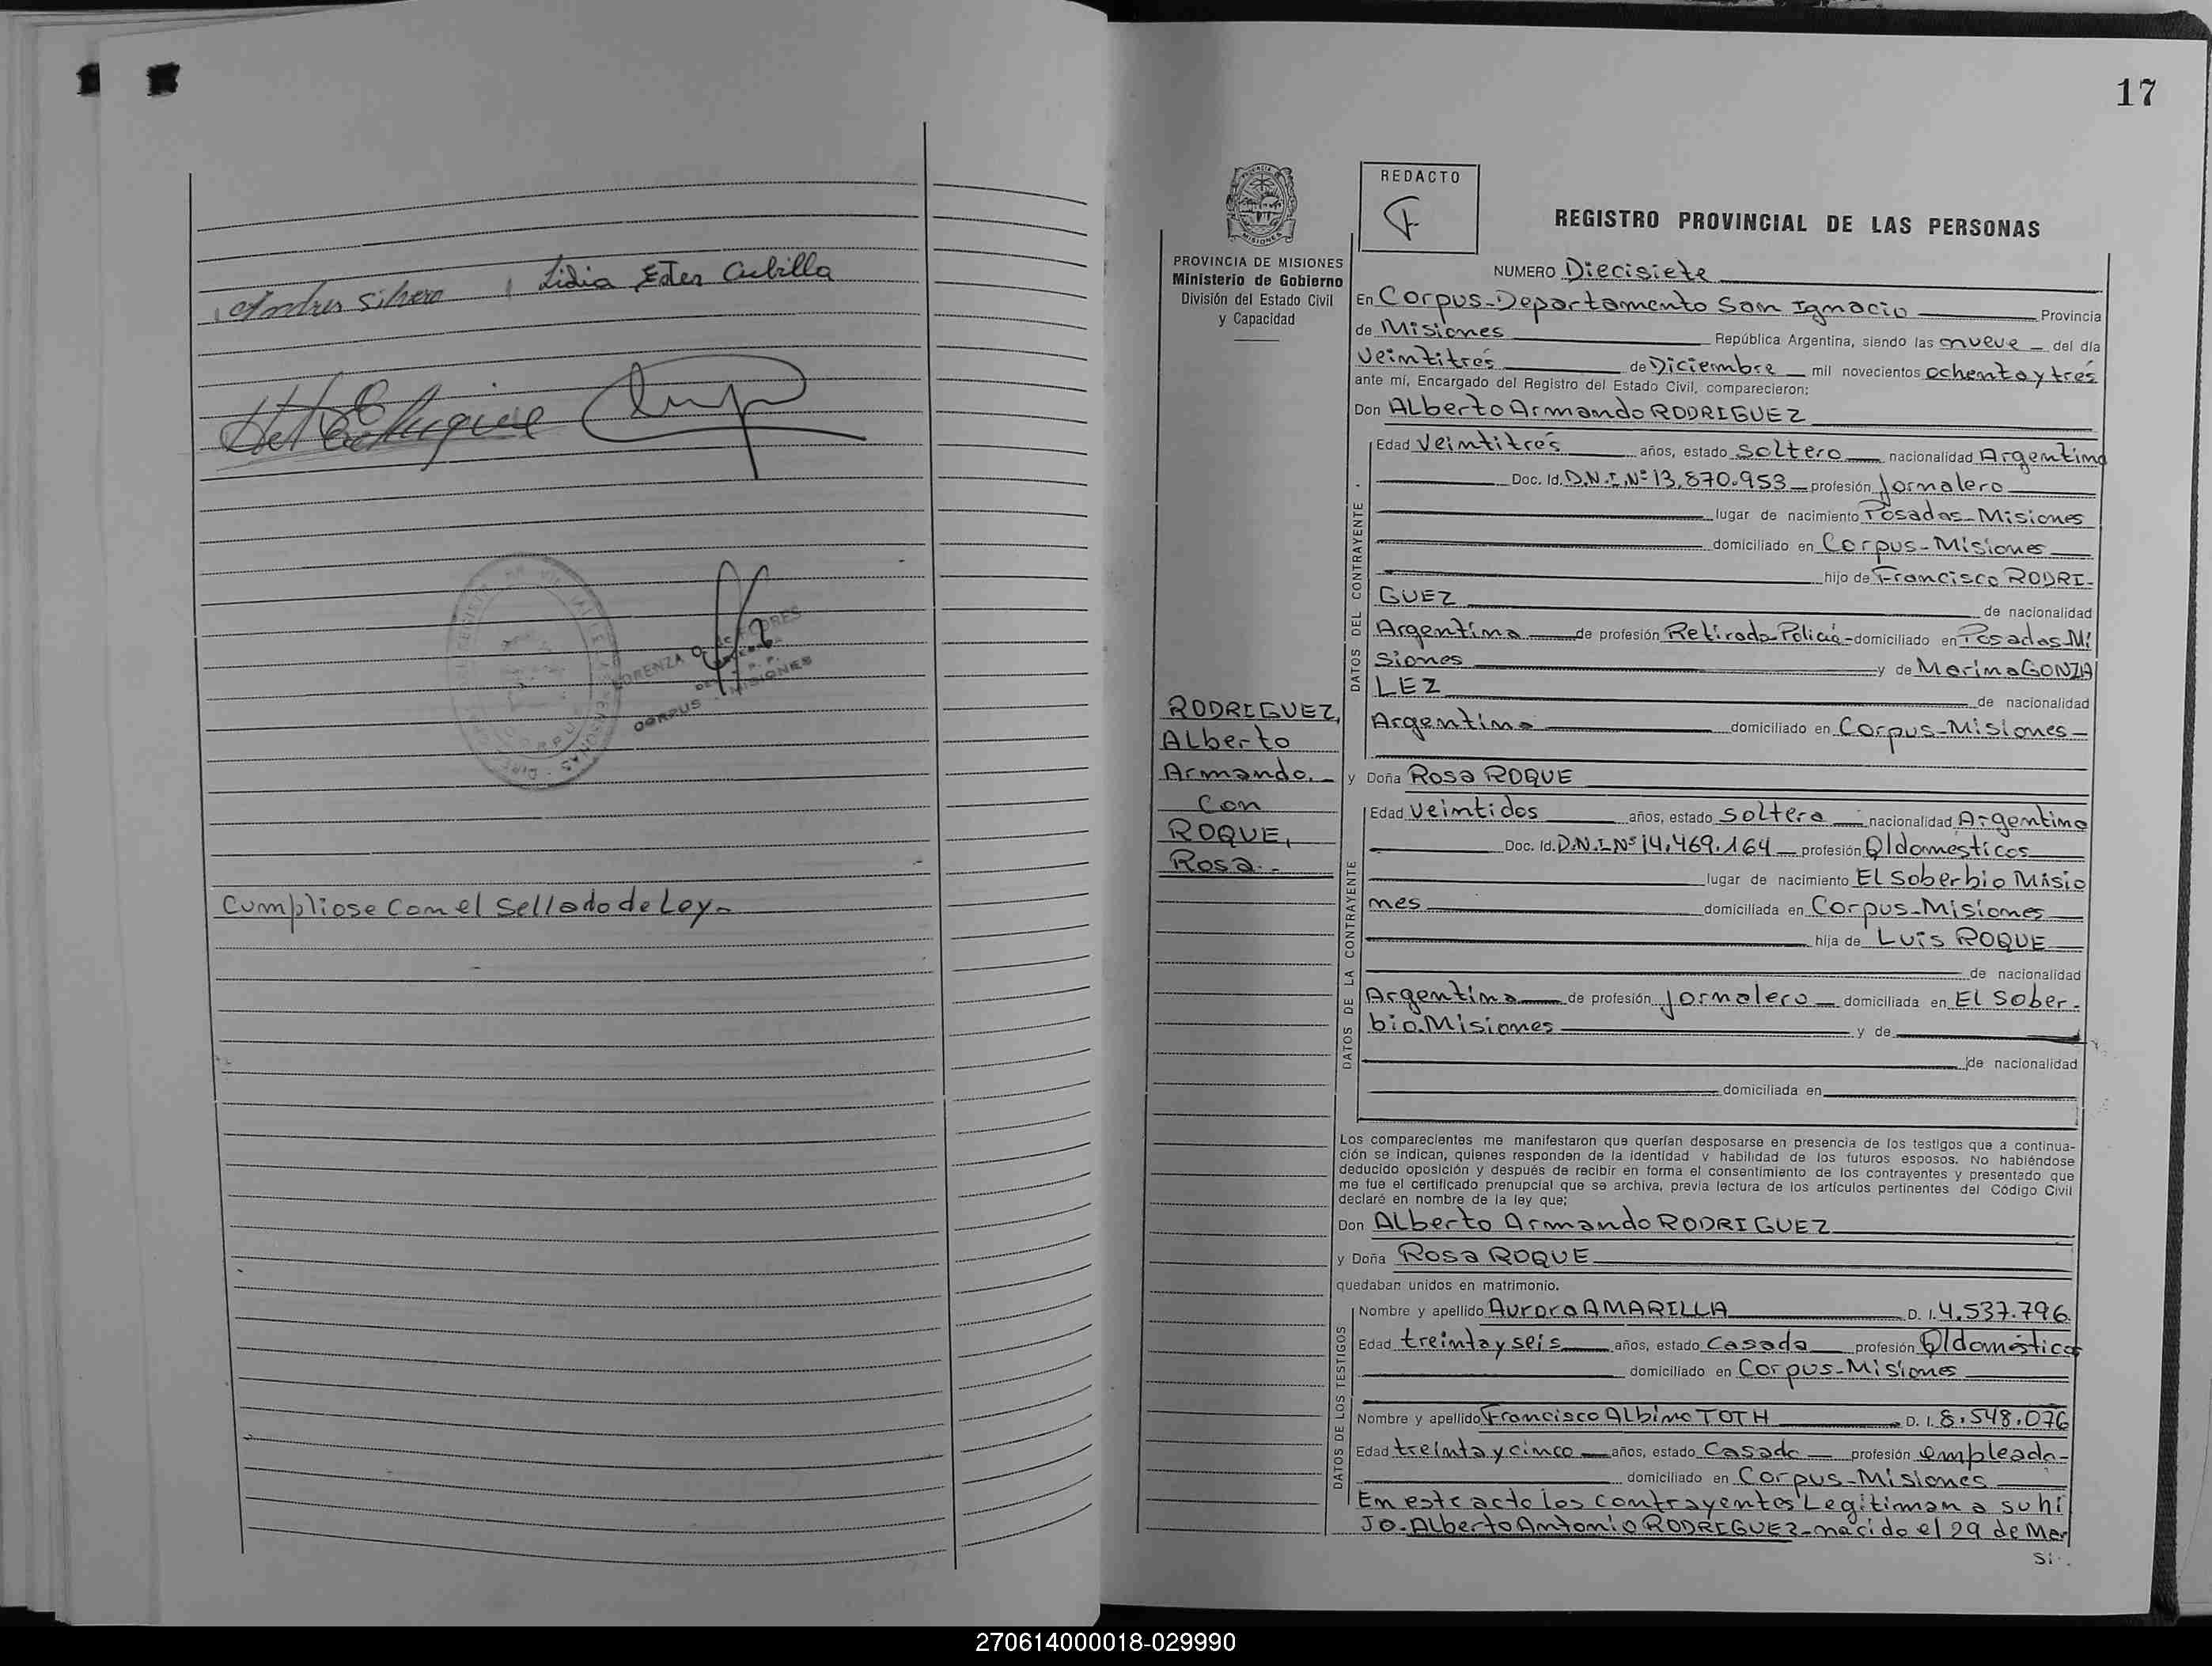 Andres Silvero Lidia Ester Cubilla
LORENZA
CORPUS - MISIONES
Cumpliose con el Sellado de Ley.-
17
REDACTO
REGISTRO PROVINCIAL DE LAS PERSONAS
PROVINCIA DE MISIONES
Ministerio de Gobierno
División del Estado Civil
y Capacidad
NUMERO Diecisiete
En Corpus-Departamento San Ignacio Provincia
de Misiones República Argentina, siendo las nueve del día
veintitres de Diciembre mil novecientos ochenta y tres
ante mí, Encargado del Registro del Estado Civil, comparecieron:
Don Alberto Armando RODRIGUEZ
DATOS DEL CONTRAYENTE
Edad Veintitres años, estado Soltero nacionalidad Argentina
Doc. Id. D.N.I.Nº 13.870.953 profesión Jornalero
lugar de nacimiento Posadas-Misiones
domiciliado en Corpus-Misiones
hijo de Francisco RODRI-
GUEZ de nacionalidad
Argentina de profesión Retirado-Policia- domiciliado en Posadas Mi
siones y de Marina GONZA
LEZ de nacionalidad
Argentina domiciliado en Corpus-Misiones-
RODRIGUEZ,
Alberto
Armando.-
Con
ROQUE,
Rosa.-
y Doña Rosa ROQUE
DATOS DE LA CONTRAYENTE
Edad Veintidos años, estado Soltera nacionalidad Argentina
Doc. Id. D.N.I.Nº 14.469.164 profesión Q/domesticos
lugar de nacimiento El Soberbio Misio
nes domiciliada en Corpus-Misiones
hija de Luis ROQUE
de nacionalidad
Argentina de profesión Jornalero domiciliada en El Sober-
bio.Misiones y de
de nacionalidad
domiciliada en
Los comparecientes me manifestaron que querían desposarse en presencia de los testigos que a continua-
ción se indican, quienes responden de la identidad y habilidad de los futuros esposos. No habiéndose
deducido oposición y después de recibir en forma el consentimiento de los contrayentes y presentado que
me fue el certificado prenupcial que se archiva, previa lectura de los artículos pertinentes del Código Civil
declaré en nombre de la ley que;
Don Alberto Armando RODRIGUEZ
y Doña Rosa ROQUE
quedaban unidos en matrimonio.
DATOS DE LOS TESTIGOS
Nombre y apellido Aurora AMARILLA D. I. 4.537.796
Edad treinta y seis años, estado Casada profesión Q/domésticos
domiciliado en Corpus-Misiones
Nombre y apellido Francisco Albino TOTH D. I. 8.548.076
Edad treinta y cinco años, estado Casado profesión empleado-
domiciliado en Corpus-Misiones
En este acto los contrayentes Legitiman a su hi
jo-Alberto Antonio RODRIGUEZ-nacido el 29 de Mar
Si..
270614000018-029990